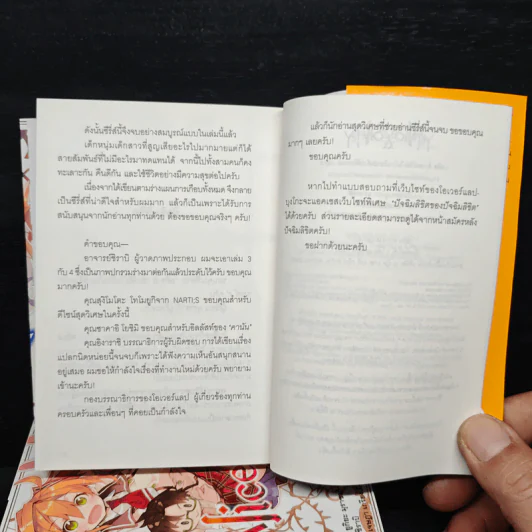 ดังนั้นซีรี่ส์นี้จึงจบอย่างสมบูรณ์แบบในเล่มนี้แล้ว
เด็กหนุ่มเด็กสาวที่สูญเสียอะไรไปมากมายแต่ก็ได้
สายสัมพันธ์ที่ไม่มีอะไรมาทดแทนได้ จากนี้ไปทั้งสามคนก็คง
ทะเลาะกัน คืนดีกัน และใช้ชีวิตอย่างมีความสุขต่อไปครับ
เนื่องจากได้เขียนตามร่างแผนการเกือบทั้งหมด จึงกลาย
เป็นซีรี่ส์ที่น่าดีใจสำหรับผมมากๆ แล้วก็เป็นเพราะได้รับการ
สนับสนุนจากนักอ่านทุกท่านด้วย ต้องขอขอบคุณจริงๆ ครับ!
คำขอบคุณ—
อาจารย์ชิราบิ ผู้วาดภาพประกอบ ผมจะเอาเล่ม 3
กับ 4 ซึ่งเป็นภาพปกรวมร่างมาต่อกันแล้วประดับไว้ครับ ขอบคุณ
มากครับ!
คุณสุงิโมโตะ โทโมยูกิจาก NARTI;S ขอบคุณสำหรับ
ดีไซน์สุดวิเศษในครั้งนี้
คุณซาคาอิ โยชิมิ ขอบคุณสำหรับอิลลัสท์ของ "คานัน"
คุณอิงาราชิ บรรณาธิการผู้รับผิดชอบ การได้เขียนเรื่อง
แปลกนิดหน่อยนี้จนจบก็เพราะได้ฟังความเห็นอันสนุกสนาน
อยู่เสมอ ผมขอให้กำลังใจเรื่องที่ทำงานใหม่ด้วยครับ พยายาม
เข้านะครับ!
กองบรรณาธิการของโอเวอร์แลป ผู้เกี่ยวข้องทุกท่าน
ครอบครัวและเพื่อนๆ ที่คอยเป็นกำลังใจ
แล้วก็นักอ่านสุดวิเศษที่ช่วยอ่านซีรี่ส์นี้จนจบ ขอขอบคุณ
มากๆ เลยครับ!
ขอบคุณครับ
หากไปทำแบบสอบถามที่เว็บไซท์ของโอเวอร์แลป-
บุงโกะจะแอคเซสเว็บไซท์พิเศษ "ปัจฉิมลิขิตของปัจฉิมลิขิต"
ได้ด้วยครับ ส่วนรายละเอียดสามารถดูได้จากหน้าสมัครหลัง
ปัจฉิมลิขิตครับ
ขอฝากด้วยนะครับ